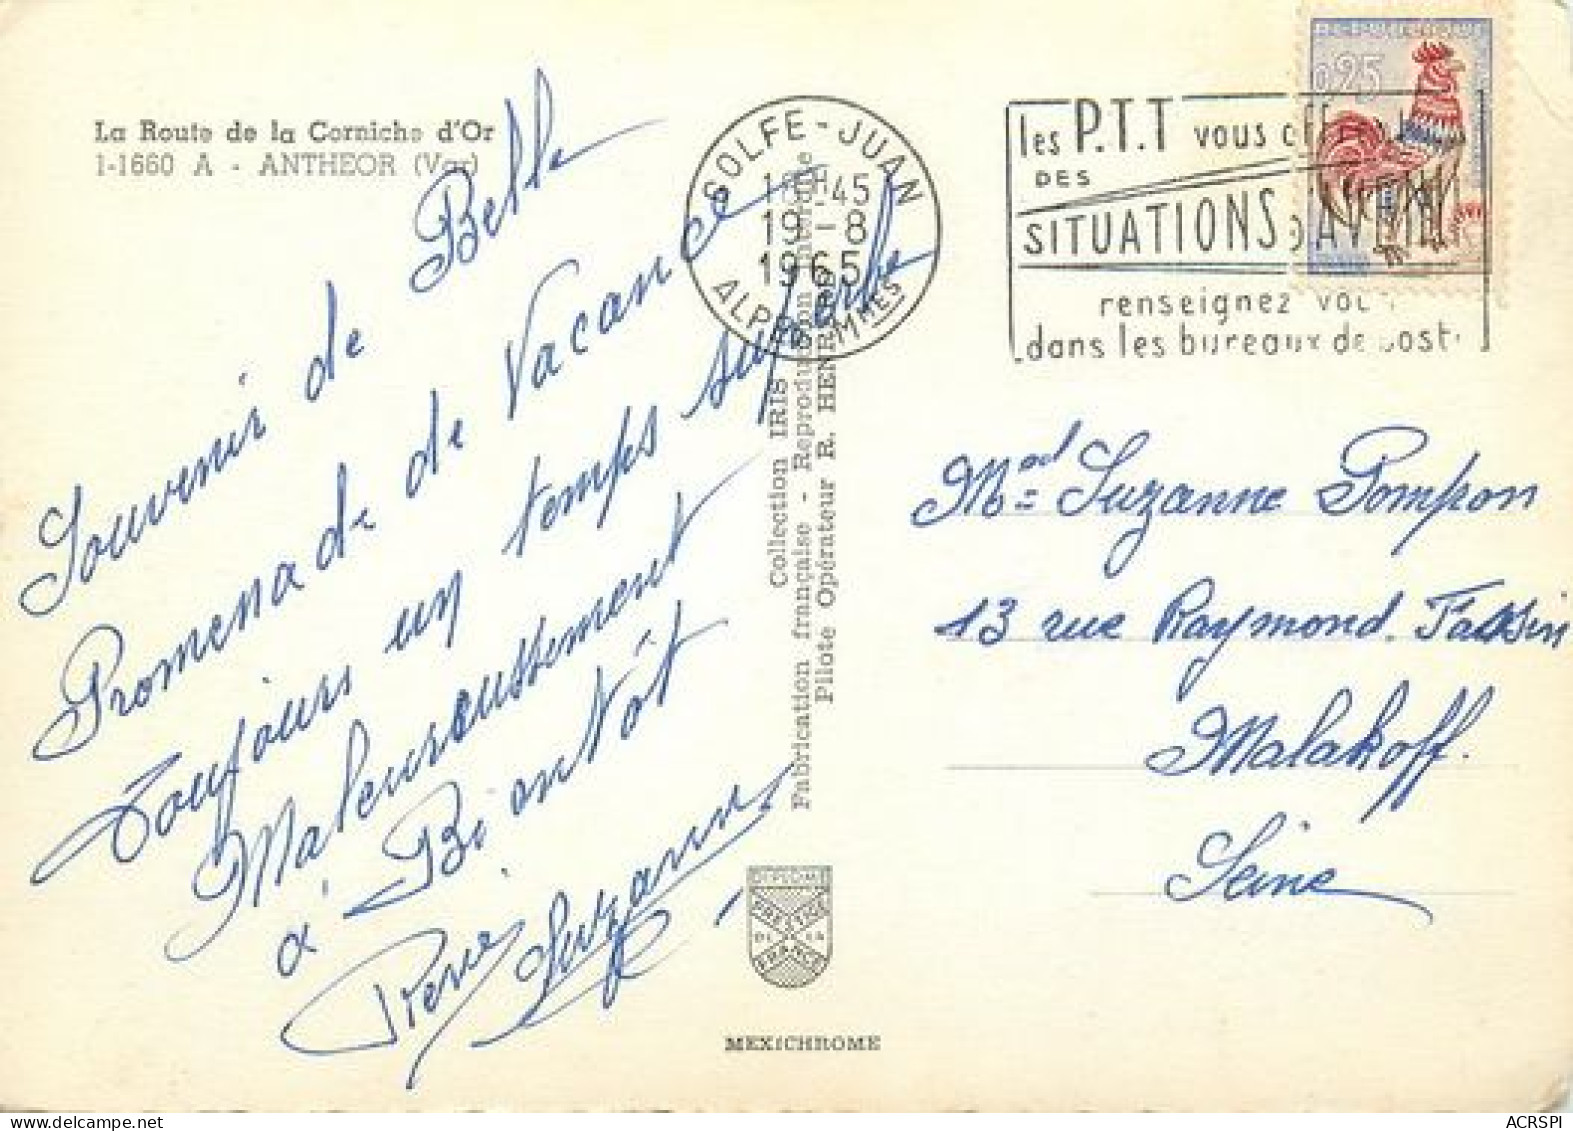 La Route de la Corniche d'Or
1-1660 A - ANTHEOR (Var)
Souvenir de Belle
Promenade de Vacance
Toujours un temps superbe
Maleureussement
a Biantôt
Suzanne
GOLFE-JUAN
18H45
19-8
1965
ALPES MMES
les P.T.T vous
DES
SITUATIONS D'AVENIR
renseignez vous
dans les bureaux de poste
0,25
Collection IRIS
Fabrication française - Reproduction interdite
Pilote Opérateur R. HENRARD
DIPLOME
PRESTIGE
DE LA
FRANCE
MEXICHROME
Mad= Suzanne Pompon
13 rue Raymond. Fassin
Malakoff.
Seine
ACRSPI